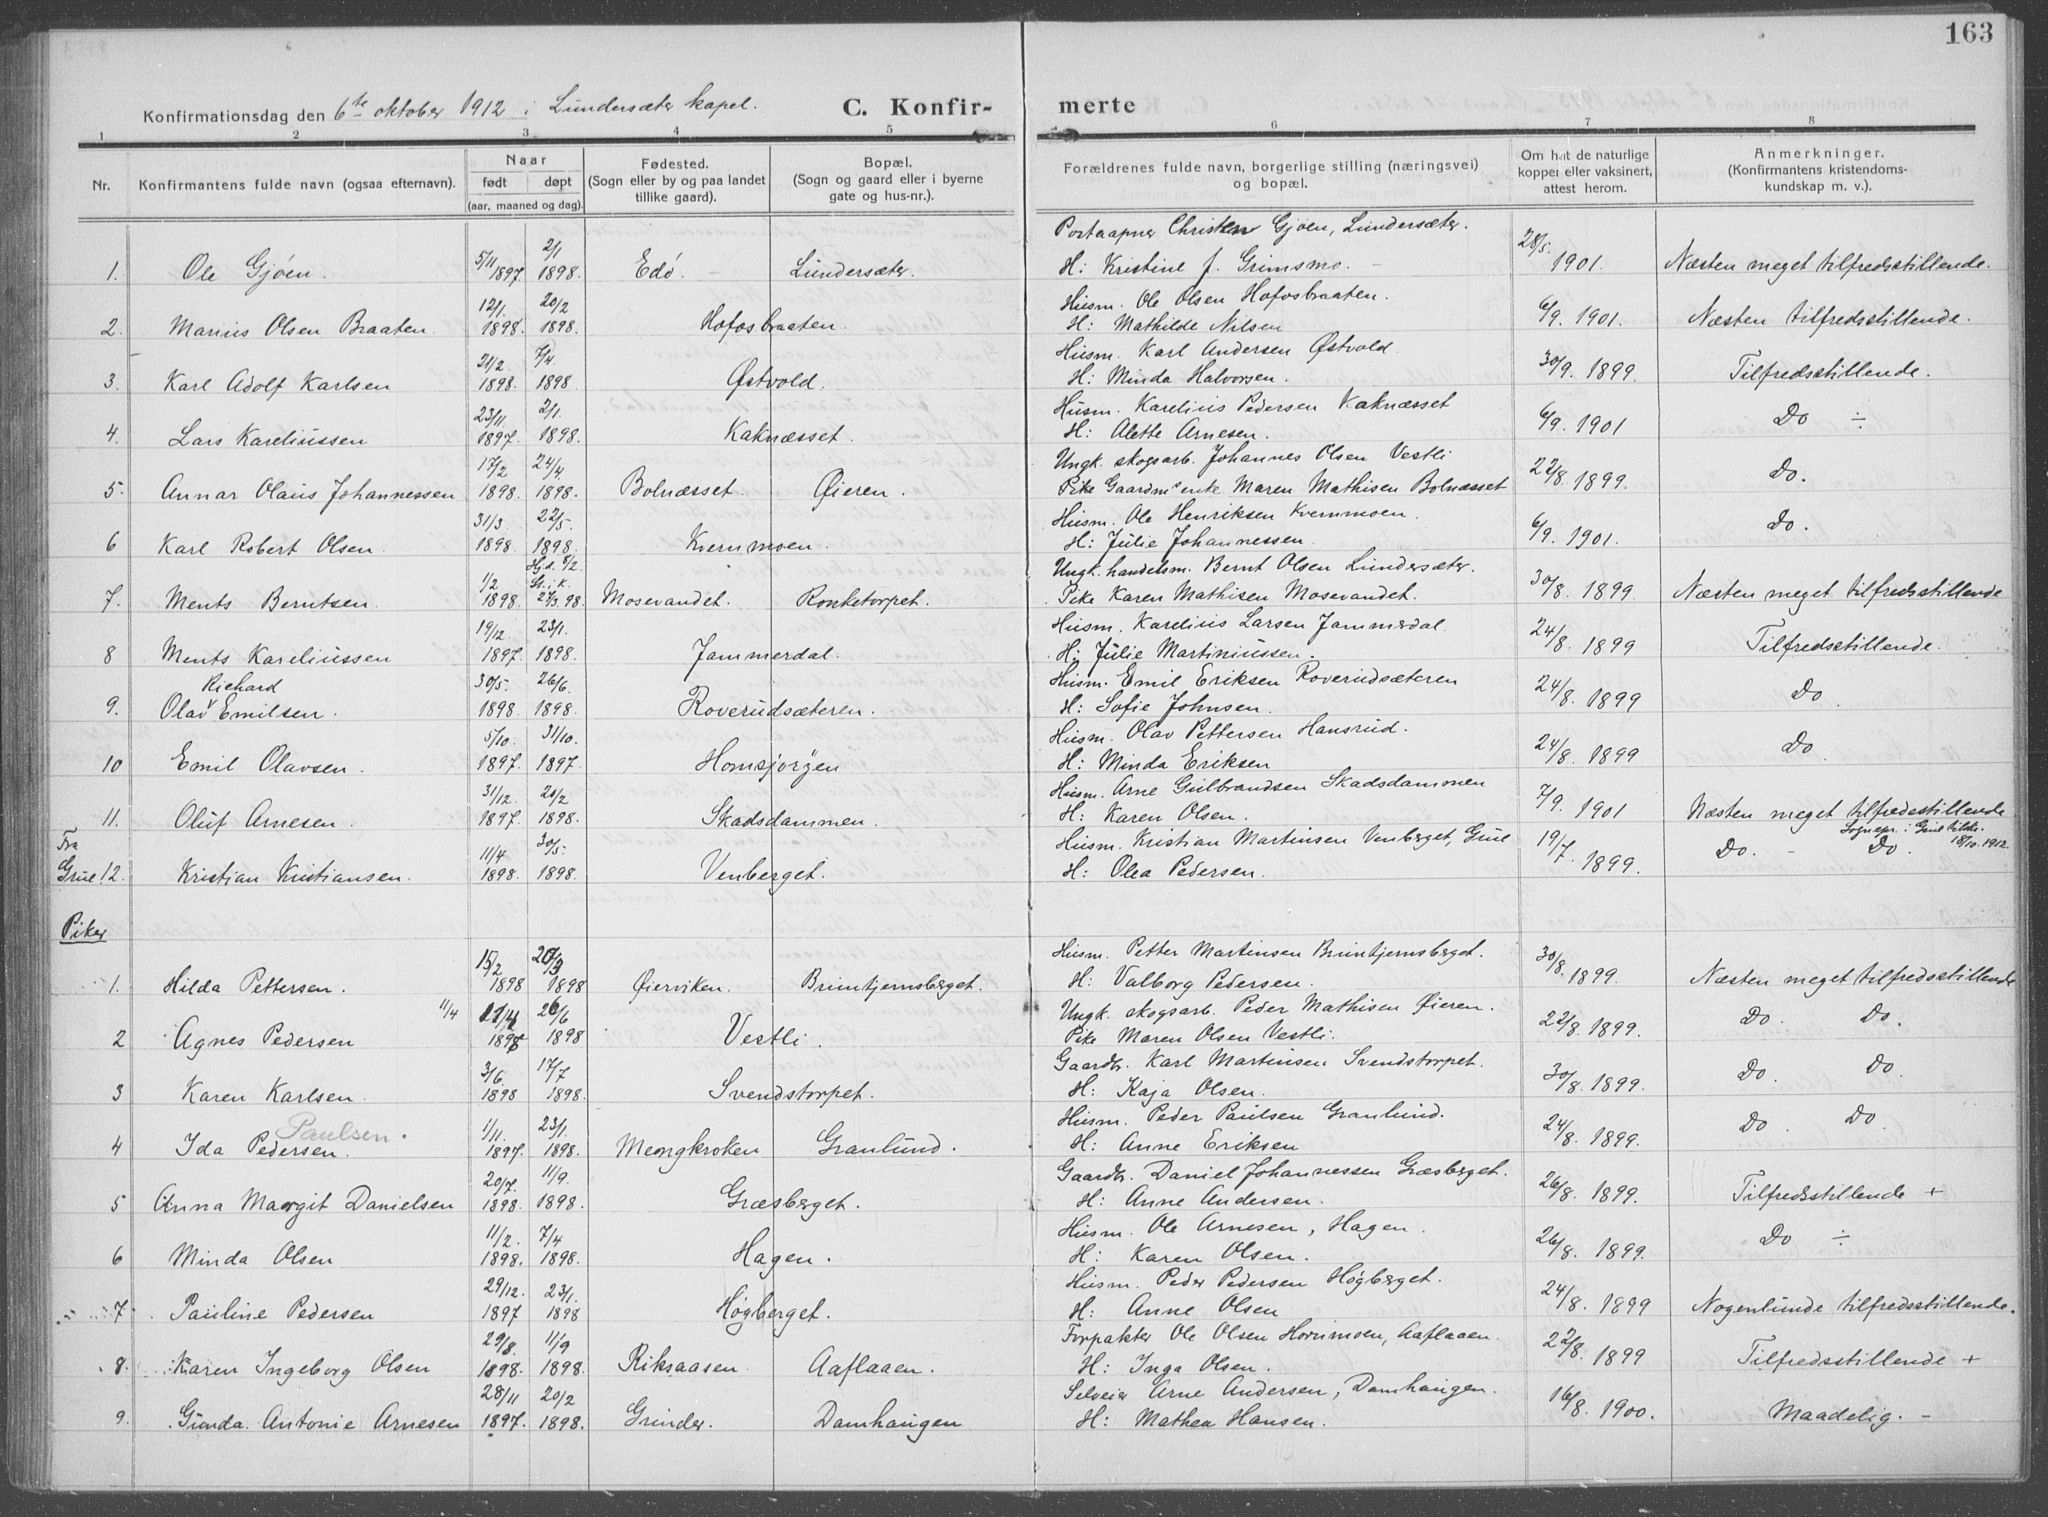 163
Konfirmationsdag den 6te oktober 1912 i Lundersæter kapel.
C. Konfirmerte
1 2 3 4 5 6 7 8
Nr. | Konfirmantens fulde navn (ogsaa efternavn). | Naar født døpt (aar, maaned og dag). | Fødested. (Sogn eller by og paa landet tillike gaard). | Bopæl. (Sogn og gaard eller i byerne gate og hus-nr.). | Forældrenes fulde navn, borgerlige stilling (næringsvei) og bopæl. | Om hat de naturlige kopper eller vaksinert, attest herom. | Anmerkninger. (Konfirmantens kristendoms-kundskap m. v.).
1. Ole Gjøen. 5/11 1897. 2/1 1898. Edö. Lundersæter. Postaapner Christen Gjøen, Lundersæter. H: Kristine J. Grimsmo. 28/5. 1901. Næsten meget tilfredsstillende.
2. Marius Olsen Braaten. 12/1. 1898. 20/2 1898. Hofosbraaten. Husm. Ole Olsen Hofosbraaten. H: Mathilde Nilsen 6/9. 1901. Næsten tilfredsstillende.
3. Karl Adolf Karlsen 21/2 1898. 7/4. 1898 Østvold. Husm. Karl Andersen Østvold. H: Minda Halvorsen. 30/9. 1899. Tilfredsstillende.
4. Lars Kareliussen 23/11. 1897. 2/1. 1898. Kaknæsset. Husm. Karelius Pedersen Kaknæsset H: Alette Arnesen. 6/9. 1901 Do ÷
5. Annar Olaus Johannessen 17/2 1898. 24/4. 1898. Bolnæsset. Øieren. Ungk. skogsarb. Johannes Olsen Vestli Pike Gaardm's enke Maren Mathisen Bolnæsset 22/8. 1899. Do.
6 Karl Robert Olsen. 31/3. 1898. 22/5. 1898. Kvernmoen. Husm. Ole Henriksen Kvernmoen. H: Julie Johannessen. 6/9. 1901. Do.
7. Ments Berntsen. 1/2 1898. Hj.d. 6/2 St. i k. 27/3. 98. Mosevandet. Ronketorpet. Ungk. handelsm. Bernt Olsen Lundersæter. Pike Karen Mathisen Mosevandet. 30/8. 1899 Næsten meget tilfredsstillende
8 Ments Kareliussen 19/12. 1897. 23/1. 1898. Jammerdal. Husm. Karelius Larsen Jammerdal. H: Julie Martiniussen. 24/8. 1899 Tilfredsstillende.
9. Olav Richard Emilsen. 30/5. 1898. 26/6. 1898. Roverudsæteren. Husm. Emil Eriksen Roverudsæteren H: Sofie Johnsen. 24/8. 1899 Do
10 Emil Olavsen. 5/10. 1897. 31/10. 1897. Homsjørgen Husm. Olav Pettersen Hansrud. H: Minda Eriksen 24/8. 1899 Do
11. Oluf Arnesen. 31/12. 1897. 20/2 1898. Skadsdammen. Husm. Arne Gulbrandsen Skadsdammen H: Karen Olsen. 7/9. 1901 Næsten meget tilfredsstillende
Fra Grue 12. Kristian Kristiansen. 11/4 1898. 30/5. 1898. Venberget. Husm. Kristian Martinsen Venberget, Grue H: Olea Pedersen. 19/7. 1899. Do. - Do. Sognepr. i Grue tilsk. 18/10. 1912.
Piker
1. Hilda Pettersen. 15/2 1898 20/3 1898 Øierviken. Bruntjernsberget. Husm. Petter Martinsen Bruntjernsberget. H: Valborg Pedersen. 30/8. 1899. Næsten meget tilfredsstillende
2 Agnes Pedersen 11/4 1898 26/6 1898 Vestli. Ungk. skogsarb. Peder Mathisen Øieren. Pike Maren Olsen Vestli. 22/8. 1899. Do. Do.
3 Karen Karlsen. 3/6. 1898 17/7 1898. Svendstorpet. Gaardbr. Karl Martinsen Svendstorpet. H: Kaja Olsen. 30/8. 1899. Do. Do.
4 Ida Pedersen. Paulsen. 1/11. 1897. 23/1. 1898. Meongkroken Granlund. Husm. Peder Paulsen Granlund. H: Anne Eriksen 24/8. 1899. Do. Do.
5 Anna Margit Danielsen 20/7. 1898. 11/9. 1898. Græsberget. Gaardbr. Daniel Johannessen Græsberget. H: Anne Andersen. 26/8. 1899. Tilfredsstillende +
6 Minda Olsen 11/2. 1898. 7/4 1898. Hagen. Husm. Ole Arnesen, Hagen. H: Karen Olsen. 26/8. 1899. Do ÷
7 Pauline Pedersen 29/12. 1897 23/1. 1898 Høgberget. Husm. Peder Pedersen Høgberget. H: Anne Olsen 24/8. 1899 Nogenlunde tilfredsstillende.
8. Karen Ingeborg Olsen 29/8. 1898. 11/9 1898. Riksaasen Aaflaaen. Forpakter Ole Olsen Hornmoen, Aaflaaen. H: Inga Olsen. 22/8. 1899 Tilfredsstillende +
9. Gunda Antonie Arnesen 28/11 1897. 20/2 1898. Grinder. Damhaugen Selveier Arne Andersen, Damhaugen. H: Mathea Hansen. 16/8. 1900. Maadelig. -